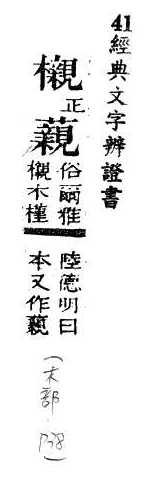 41經典文字辨證書
櫬
正
藽
俗爾雅
櫬木槿
陸德明曰
本又作藽
(木部